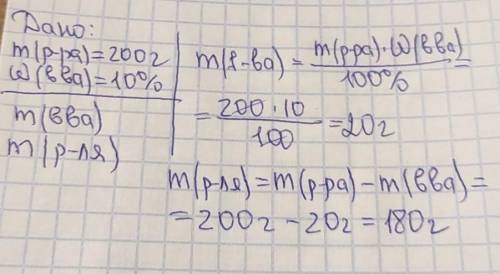 Дано:
m(р-ра)=200г
W(вва)=10%
m(вва)
m(р-ля)
m(в-ва)= m(р-ра)·W(вва) =
100%
= 200·10 =20г
100
m(р-ля)=m(р-ра)-m(вва)=
=200г-20г=180г